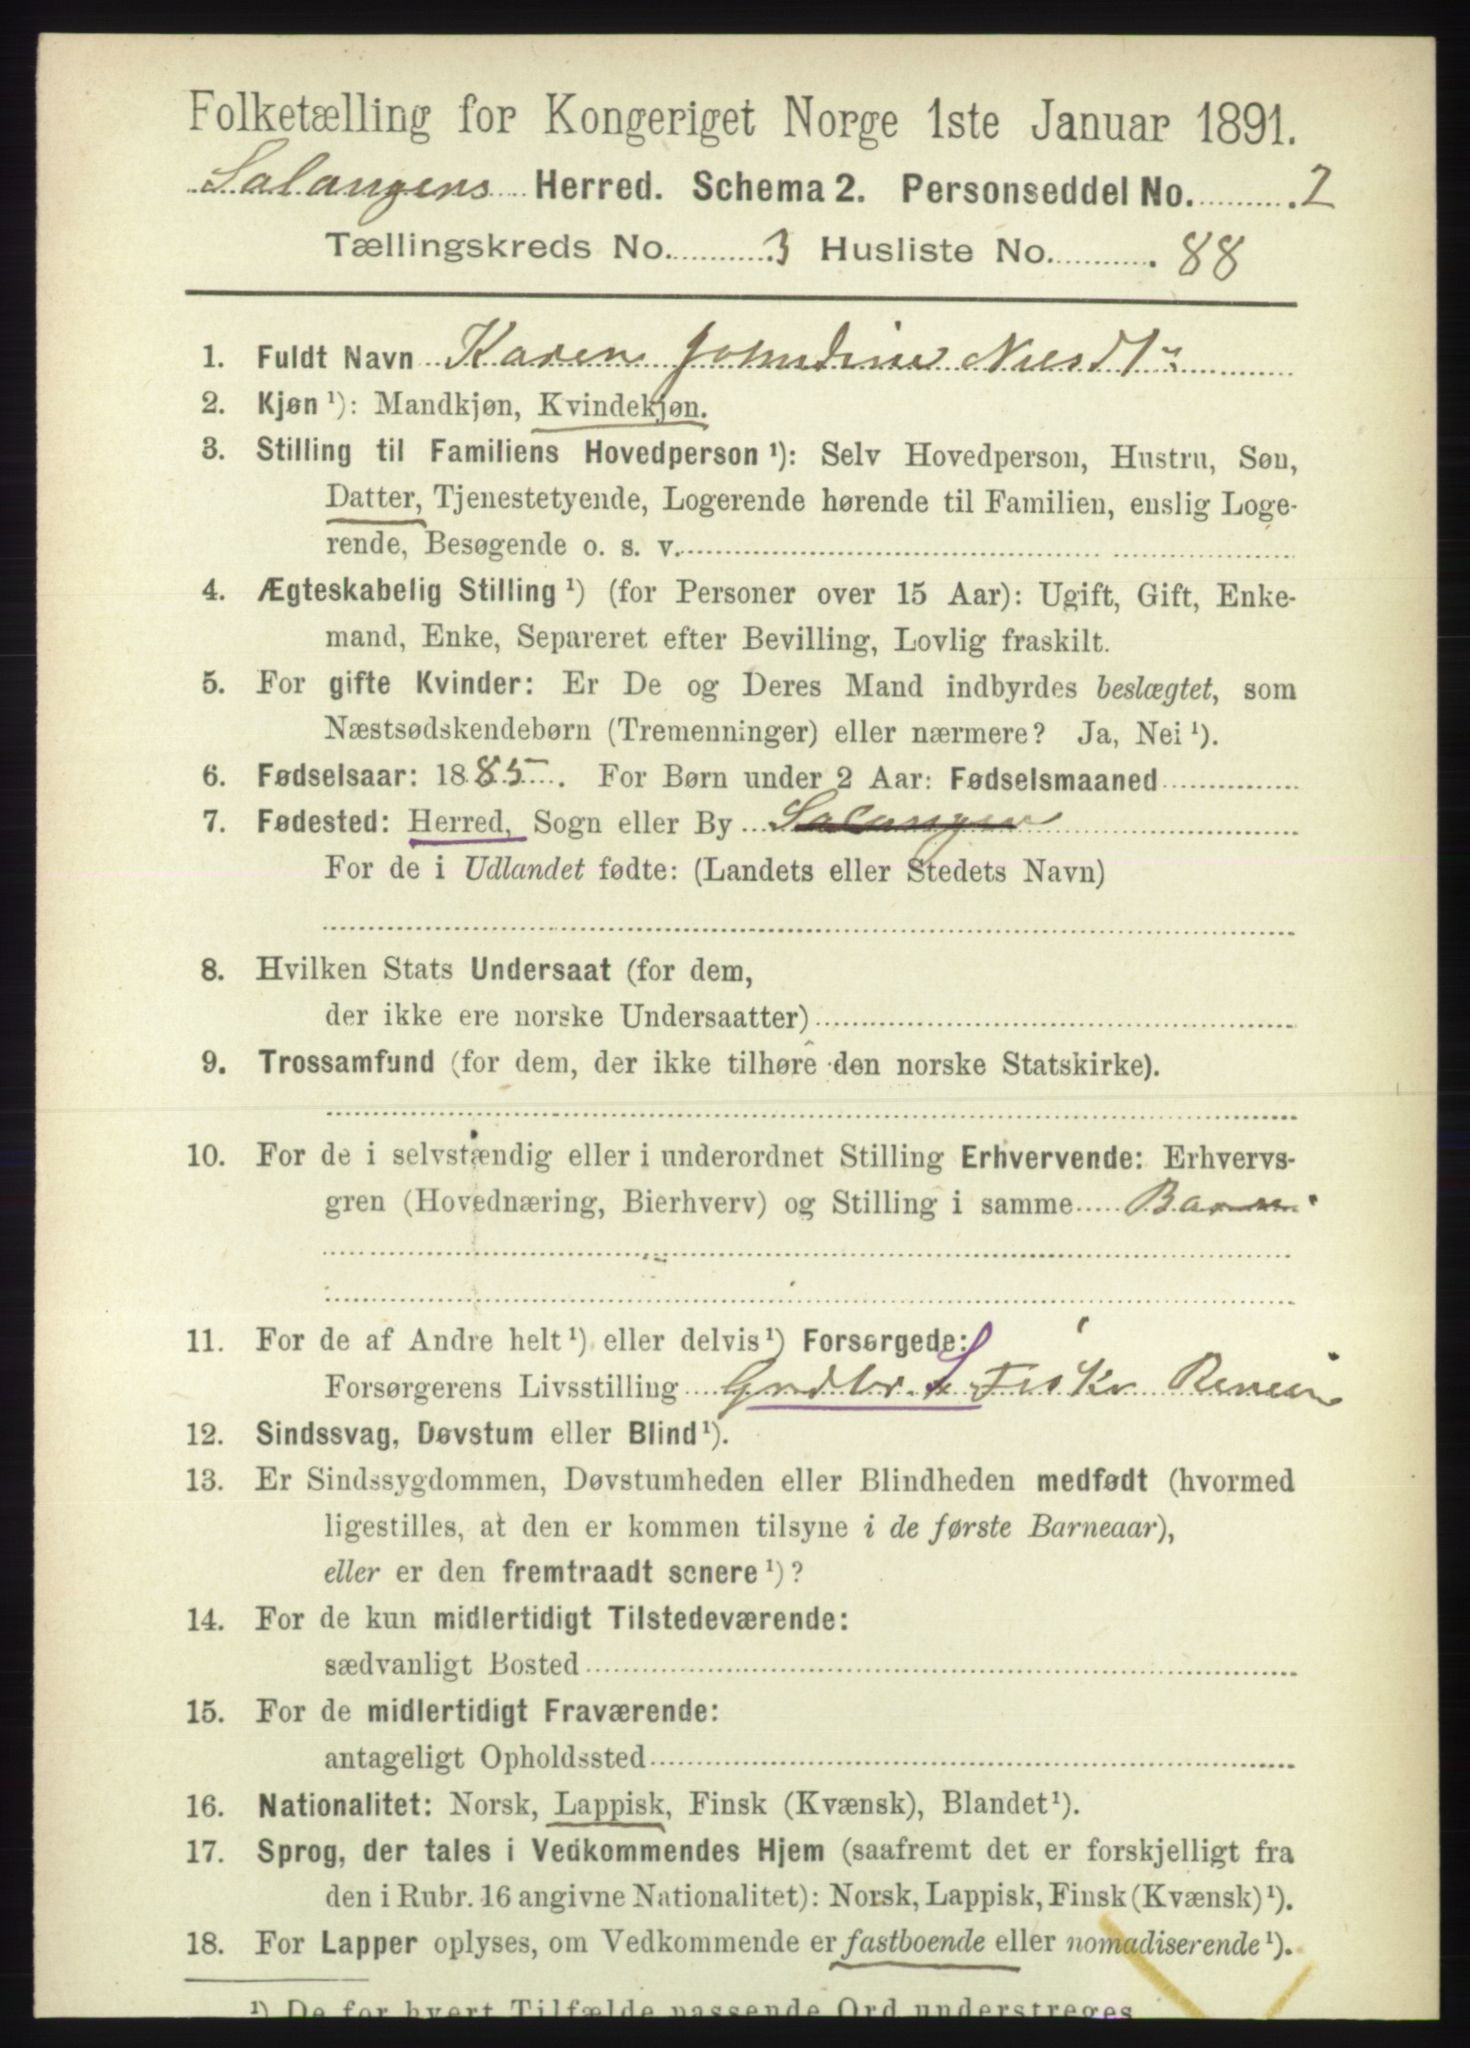 Folketælling for Kongeriget Norge 1ste Januar 1891.
Salangens Herred. Schema 2. Personseddel No. 2
Tællingskreds No. 3 Husliste No. 88
1. Fuldt Navn Karen
2. Kjøn ¹): Mandkjøn, Kvindekjøn.
3. Stilling til Familiens Hovedperson ¹): Selv Hovedperson, Hustru, Søn,
Datter, Tjenestetyende, Logerende hørende til Familien, enslig Loge-
rende, Besøgende o. s. v.
4. Ægteskabelig Stilling ¹) (for Personer over 15 Aar): Ugift, Gift, Enke-
mand, Enke, Separeret efter Bevilling, Lovlig fraskilt.
5. For gifte Kvinder: Er De og Deres Mand indbyrdes beslægtet, som
Næstsødskendebørn (Tremenninger) eller nærmere? Ja, Nei ¹).
6. Fødselsaar: 1885. For Børn under 2 Aar: Fødselsmaaned
7. Fødested: Herred, Sogn eller By Salangen
For de i Udlandet fødte: (Landets eller Stedets Navn)
8. Hvilken Stats Undersaat (for dem,
der ikke ere norske Undersaatter)
9. Trossamfund (for dem, der ikke tilhøre den norske Statskirke).
10. For de i selvstændig eller i underordnet Stilling Erhvervende: Erhvervs-
gren (Hovednæring, Bierhverv) og Stilling i samme
11. For de af Andre helt ¹) eller delvis ¹) Forsørgede:
Forsørgerens Livsstilling Grdbr.
12. Sindssvag, Døvstum eller Blind ¹).
13. Er Sindssygdommen, Døvstumheden eller Blindheden medfødt (hvormed
ligestilles, at den er kommen tilsyne i de første Barneaar),
eller er den fremtraadt senere ¹)?
14. For de kun midlertidigt Tilstedeværende:
sædvanligt Bosted
15. For de midlertidigt Fraværende:
antageligt Opholdssted
16. Nationalitet: Norsk, Lappisk, Finsk (Kvænsk), Blandet ¹).
17. Sprog, der tales i Vedkommendes Hjem (saafremt det er forskjelligt fra
den i Rubr. 16 angivne Nationalitet): Norsk, Lappisk, Finsk (Kvænsk) ¹).
18. For Lapper oplyses, om Vedkommende er fastboende eller nomadiserende ¹).
¹) De for hvert Tilfælde passende Ord understreges